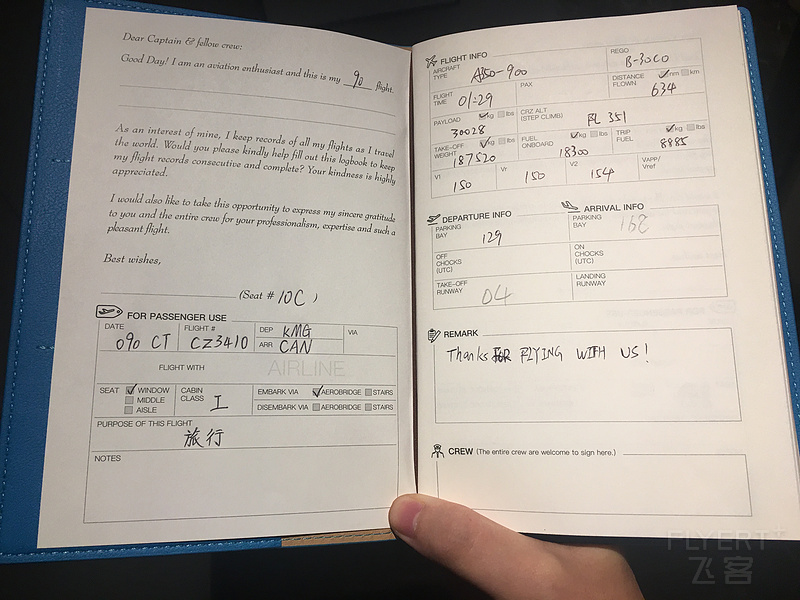 Dear Captain & fellow crew:
Good Day! I am an aviation enthusiast and this is my 90 flight.
As an interest of mine, I keep records of all my flights as I travel
the world. Would you please kindly help fill out this logbook to keep
my flight records consecutive and complete? Your kindness is highly
appreciated.
I would also like to take this opportunity to express my sincere gratitude
to you and the entire crew for your professionalism, expertise and such a
pleasant flight.
Best wishes,
(Seat # 10C )
FOR PASSENGER USE
DATE FLIGHT # DEP KMG VIA
09 OCT CZ3410 ARR CAN
FLIGHT WITH AIRLINE
SEAT WINDOW CABIN CLASS EMBARK VIA AEROBRIDGE STAIRS
MIDDLE
AISLE DISEMBARK VIA AEROBRIDGE STAIRS
PURPOSE OF THIS FLIGHT
旅行
NOTES
FLIGHT INFO
AIRCRAFT TYPE A350-900 REGO
B-30C0
FLIGHT TIME 01:29 PAX DISTANCE FLOWN nm km
634
PAYLOAD kg lbs CRZ ALT (STEP CLIMB) FL 351
30028
TAKE-OFF WEIGHT kg lbs FUEL ONBOARD kg lbs TRIP FUEL kg lbs
187520 18300 8885
V1 Vr V2 VAPP/Vref
150 150 154
DEPARTURE INFO
PARKING BAY 129
OFF CHOCKS (UTC)
TAKE-OFF RUNWAY 04
ARRIVAL INFO
PARKING BAY
ON CHOCKS (UTC)
LANDING RUNWAY
REMARK
Thanks FOR FLYING WITH US!
CREW (The entire crew are welcome to sign here.)
FLYERT
飞客